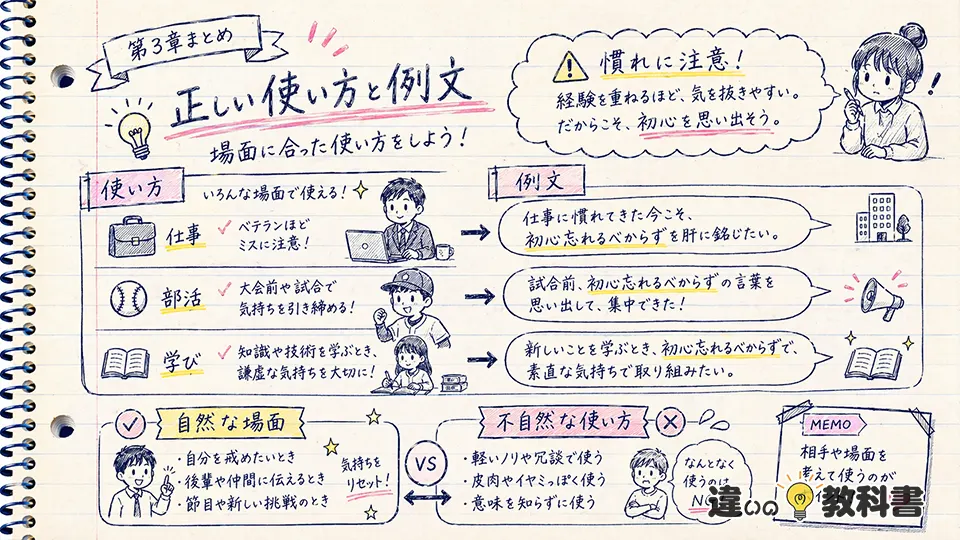 第3章まとめ
正しい使い方と例文
場面に合った使い方をしよう!
慣れに注意!
経験を重ねるほど、気を抜きやすい。
だからこそ、初心を思い出そう。
使い方
いろんな場面で使える!
例文
仕事
ベテランほど
ミスに注意!
仕事に慣れてきた今こそ、
初心忘れるべからずを肝に銘じたい。
部活
大会前や試合で
気持ちを引き締める!
試合前、初心忘れるべからずの言葉を
思い出して、集中できた!
学び
知識や技術を学ぶとき、
謙虚な気持ちを大切に!
新しいことを学ぶとき、初心忘れるべからずで、
素直な気持ちで取り組みたい。
自然な場面
・自分を戒めたいとき
・後輩や仲間に伝えるとき
・節目や新しい挑戦のとき
気持ちを
リセット!
VS
不自然な使い方
・軽いノリや冗談で使う
・皮肉やイヤミっぽく使う
・意味を知らずに使う
なんとなく
使うのは
MEMO
相手や場面を
考えて使うのが
違いの教科書